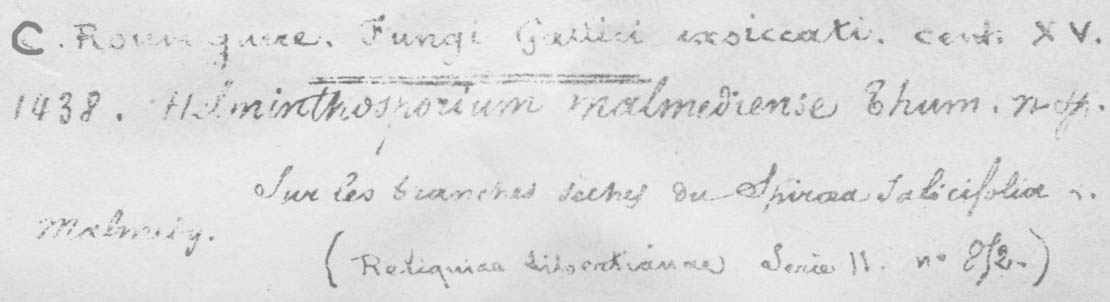 C. Roumeguere. Fungi Gallici exsiccati. cent. XV.
1438. Helminthosporium malmediense Thum. n. sp.
Sur les branches seches du Spiraea Salicifolia L.
Malmedy.
(Reliquiae Libertianae Serie II. no 852.)